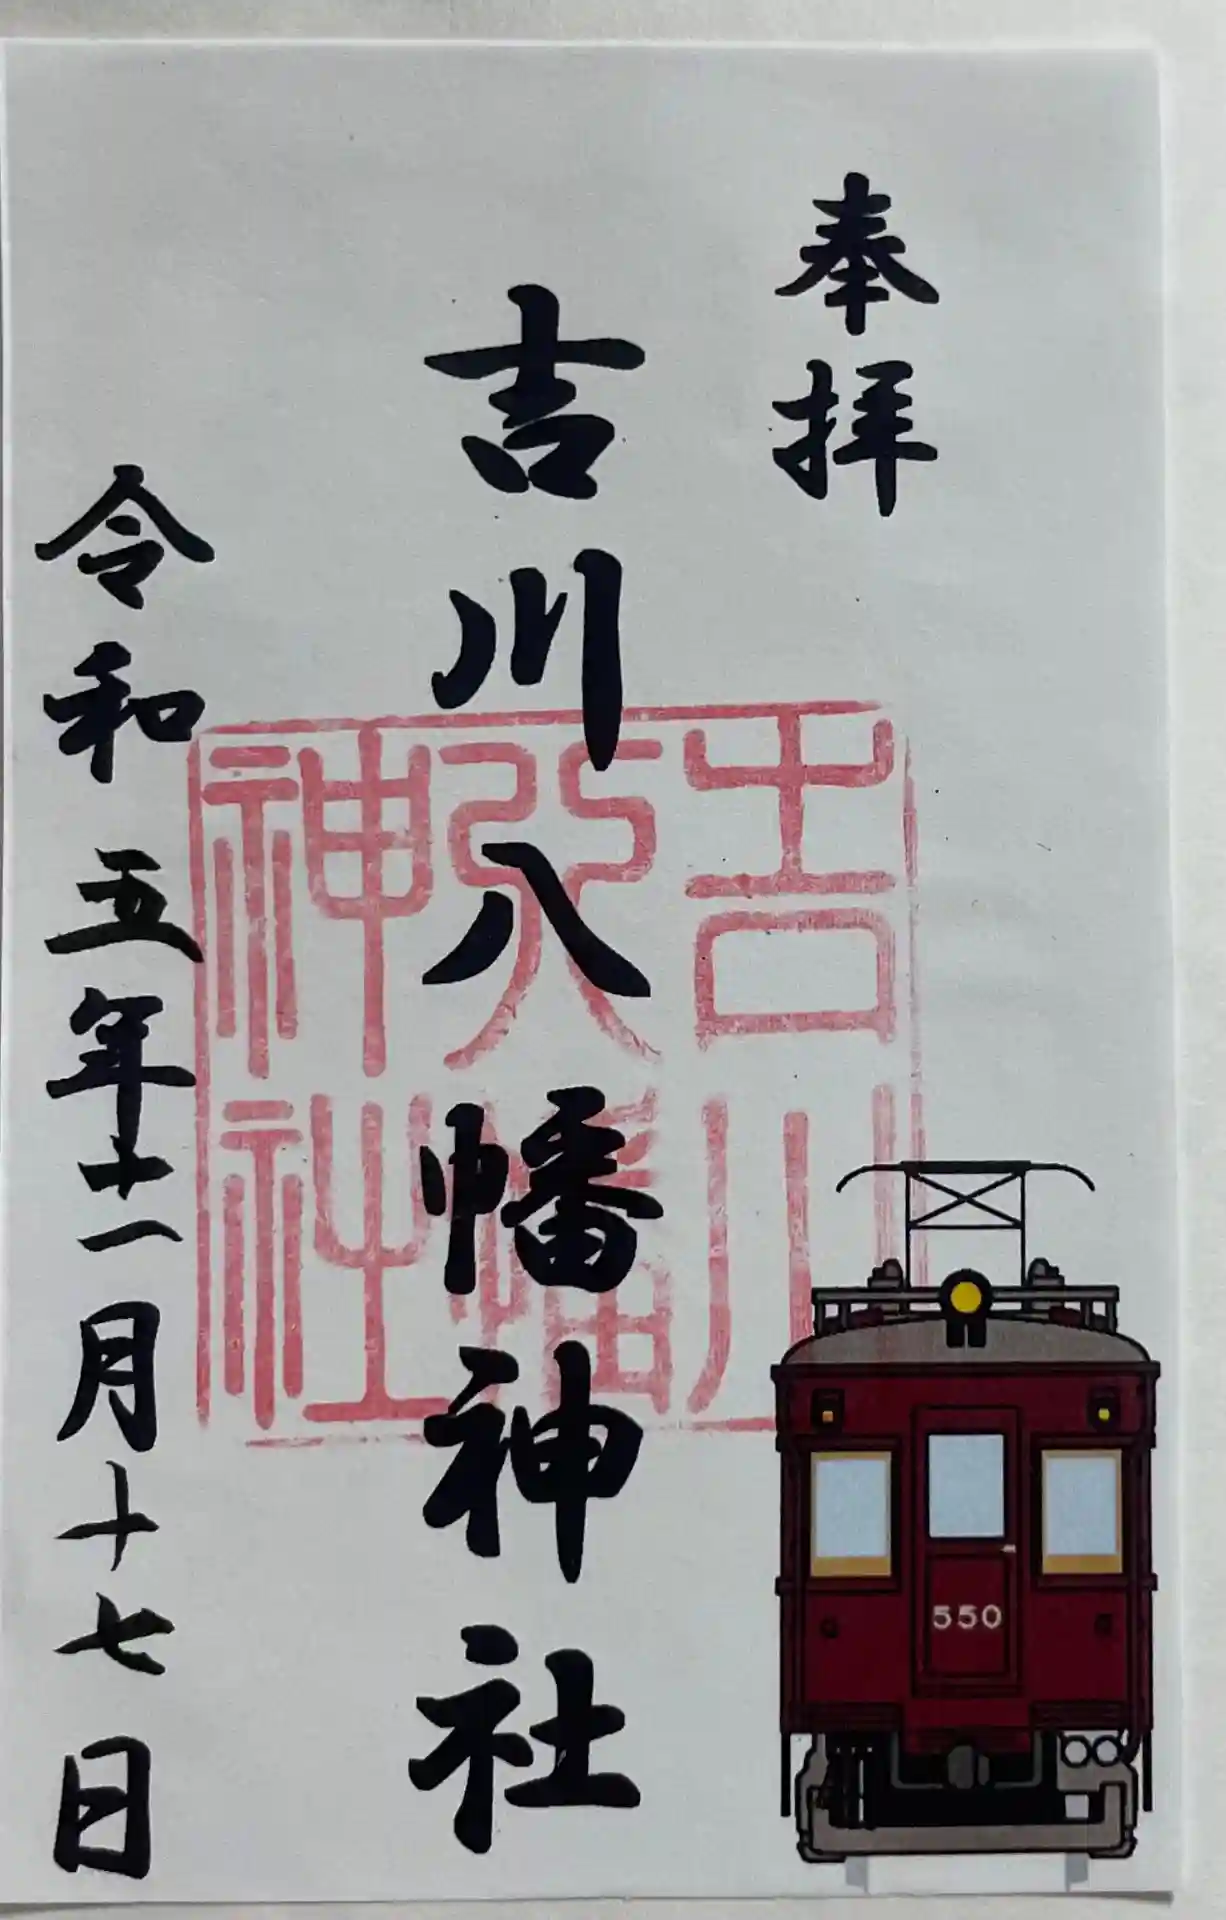 奉拝
吉川八幡神社
吉川
八幡
神社
令和五年十一月十七日
550